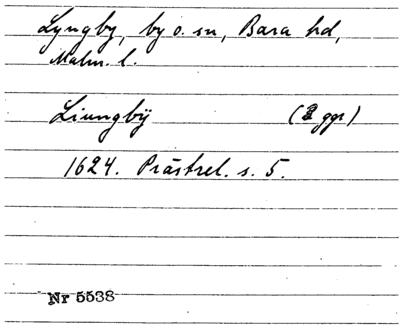 Lyngby, by o. sn, Bara hd,
Malm. l.
Liungbÿ (2 ggr)
1624. Prästrel. s. 5.
Nr 5538